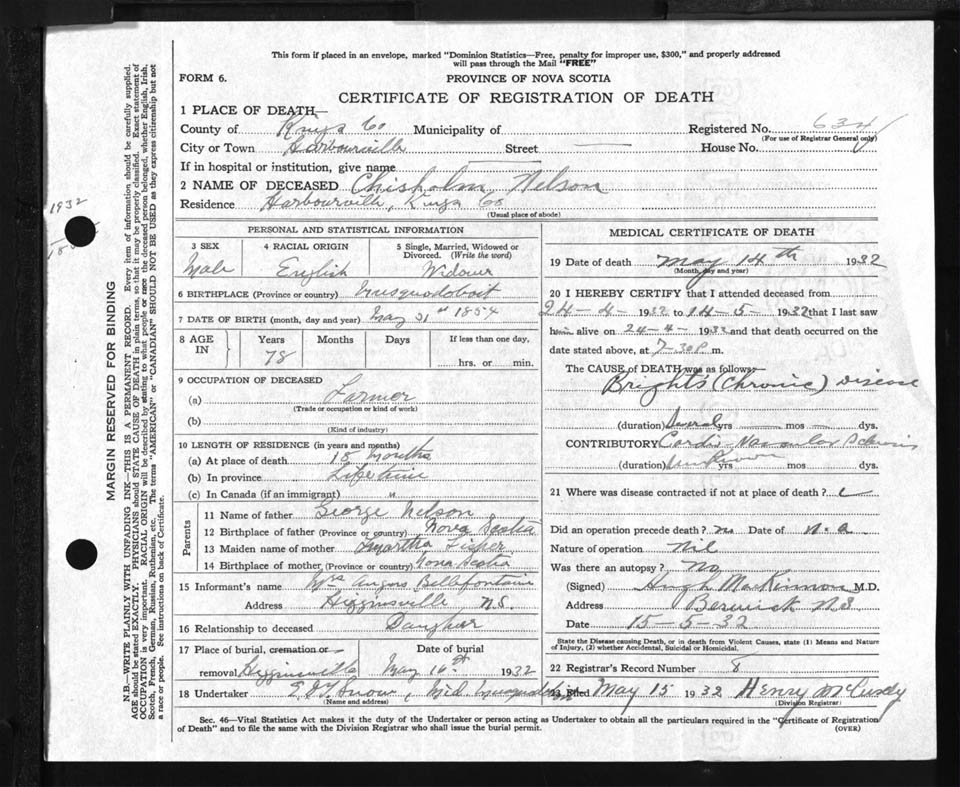 This form if placed in an envelope, marked "Dominion Statistics—Free, penalty for improper use, $300," and properly addressed
will pass through the Mail "FREE"
FORM 6.
PROVINCE OF NOVA SCOTIA
CERTIFICATE OF REGISTRATION OF DEATH
1 PLACE OF DEATH—
County of Kings Co Municipality of Registered No. 634
(For use of Registrar General only)
City or Town Harbourville Street — House No.
If in hospital or institution, give name
2 NAME OF DECEASED Chisholm Nelson
Residence Harbourville, Kings Co
(Usual place of abode)
PERSONAL AND STATISTICAL INFORMATION
3 SEX 4 RACIAL ORIGIN 5 Single, Married, Widowed or Divorced. (Write the word)
Male English Widower
6 BIRTHPLACE (Province or country) Musquodoboit
7 DATE OF BIRTH (month, day and year) May 31st 1854
8 AGE IN Years Months Days If less than one day,
78 hrs. or min.
9 OCCUPATION OF DECEASED
(a) Farmer
(Trade or occupation or kind of work)
(b)
(Kind of industry)
10 LENGTH OF RESIDENCE (in years and months)
(a) At place of death 18 months
(b) In province Life time
(c) In Canada (if an immigrant) "
Parents
11 Name of father George Nelson
12 Birthplace of father (Province or country) Nova Scotia
13 Maiden name of mother Martha Fisher
14 Birthplace of mother (Province or country) Nova Scotia
15 Informant's name Mrs Angus Bellefontain
Address Higginsville N.S.
16 Relationship to deceased Daughter
17 Place of burial, cremation or removal Higginsville
Date of burial May 16 1932
18 Undertaker E J Snow, Mid Musquodoboit
(Name and address)
MEDICAL CERTIFICATE OF DEATH
19 Date of death May 14th 1932
(Month, day and year)
20 I HEREBY CERTIFY that I attended deceased from
24-4- 1932 to 14-5- 1932 that I last saw
him alive on 24-4- 1932 and that death occurred on the
date stated above, at 7-30P. m.
The CAUSE OF DEATH was as follows:—
Bright's (Chronic) Disease
(duration) Several yrs mos dys.
CONTRIBUTORY Cardio Vascular Sclerosis
(duration) Unknown yrs mos dys.
21 Where was disease contracted if not at place of death?
Did an operation precede death? no Date of n.a
Nature of operation Nil
Was there an autopsy? No
(Signed) Hugh MacKinnon M.D.
Address Berwick NS
Date 15-5-32
State the Disease causing Death, or in death from Violent Causes, state (1) Means and Nature
of Injury, (2) whether Accidental, Suicidal or Homicidal.
22 Registrar's Record Number 8
23 Filed May 15 1932 Henry McCusdy
(Division Registrar)
Sec. 46—Vital Statistics Act makes it the duty of the Undertaker or person acting as Undertaker to obtain all the particulars required in the "Certificate of Registration
of Death" and to file the same with the Division Registrar who shall issue the burial permit.
(OVER)
MARGIN RESERVED FOR BINDING
N.B.—WRITE PLAINLY WITH UNFADING INK—THIS IS A PERMANENT RECORD. Every item of information should be carefully supplied.
AGE should be stated EXACTLY. PHYSICIANS should STATE CAUSE OF DEATH in plain terms, so that it may be properly classified. Exact statement of
OCCUPATION is very important. RACIAL ORIGIN will be described by stating to what people or race the deceased person belonged, whether English, Irish,
Scotch, French, German, Russian, Ruthenian, etc. The terms "AMERICAN" or "CANADIAN" SHOULD NOT BE USED as they express citizenship but not
a race or people. See instructions on back of Certificate.
1932